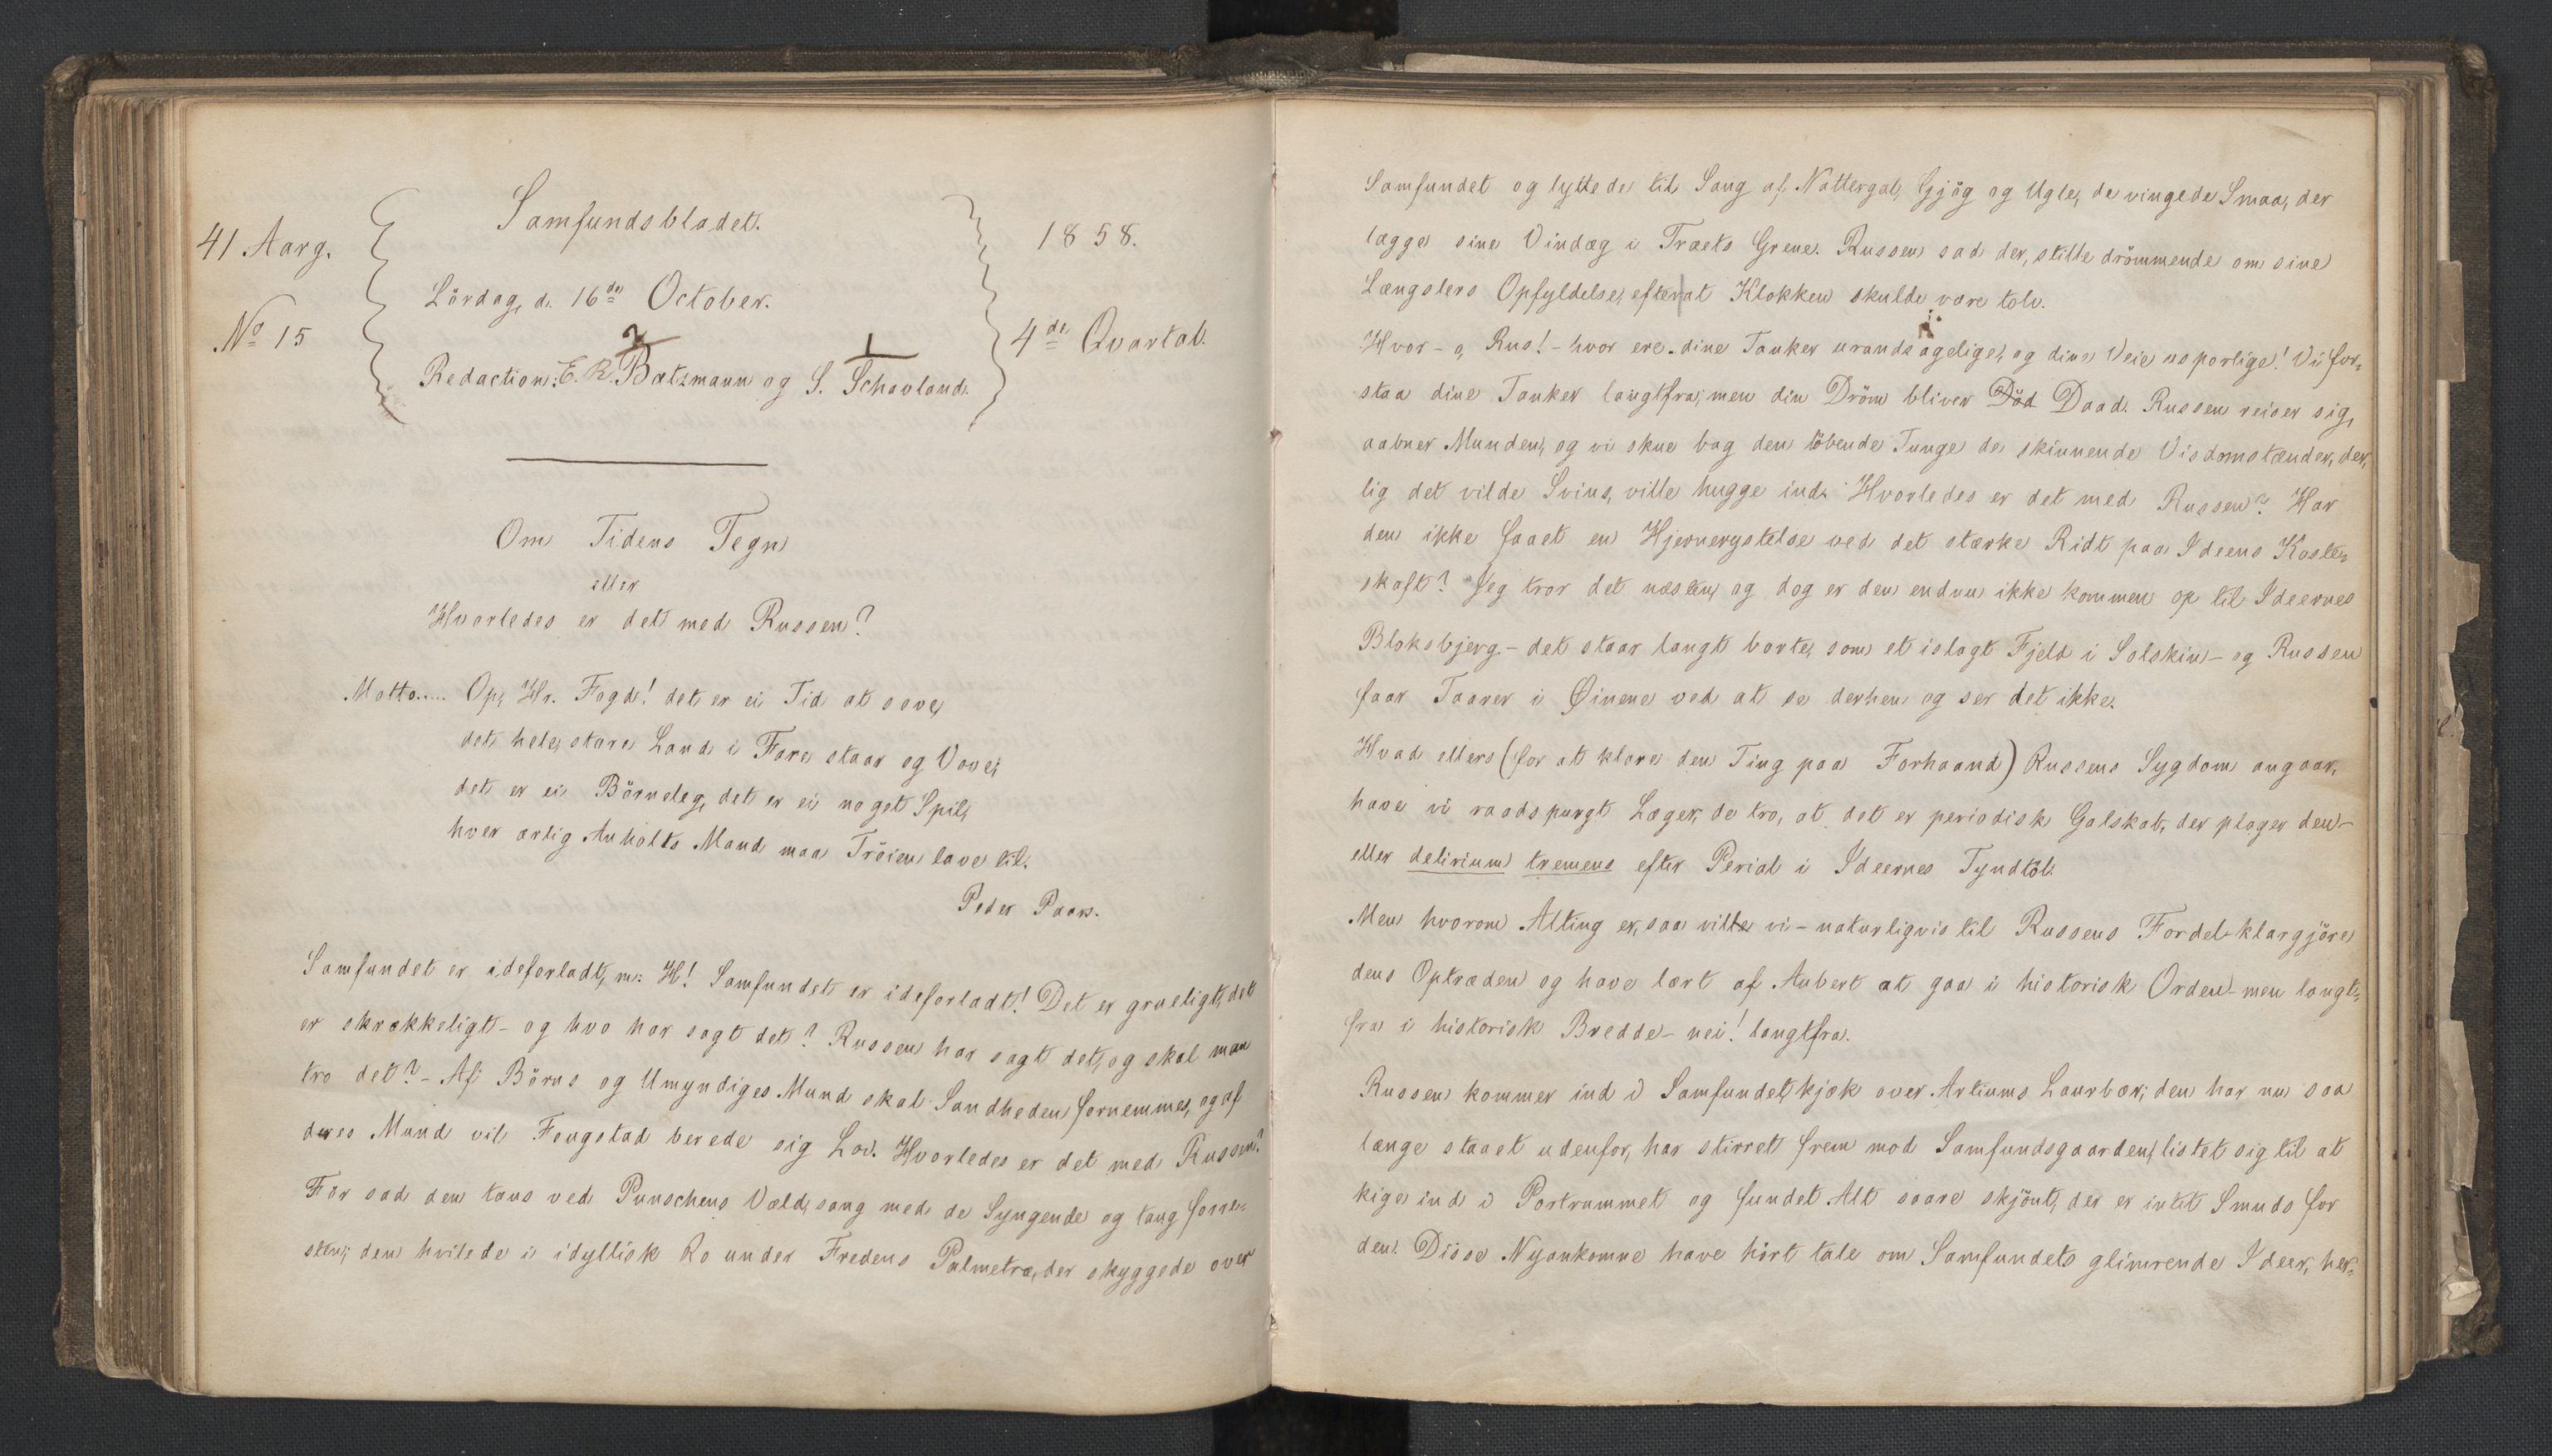 Samfundsbladet.
41 Aarg.
1858.
Lördag, d. 16de October.
No 15
4de Qvartal.
2
1
Redaction: E. R. Bætzmann og S. Schavland.
Om Tidens Tegn
eller
Hvorledes er det med Russen?
Motto..... Op, Hr. Fogd! det er ei Tid at sove,
det hele store Land i Fare staar og Vove;
det er ei Börneleg, det er ei noget Spil,
hver ærlig Anholts Mand maa Tröien lave til.
Peder Paars.
Samfundet er ideforladt, m: H! Samfundet er ideforladt! Det er grueligt, det
er skrækkeligt – og hvo har sagt det? Russen har sagt det, og skal man
tro det? – Af Börns og Umyndiges Mund skal Sandheden fornemmes, og af
deres Mund vil Fougstad berede sig Lov. Hvorledes er det med Russen?
För sad den taus ved Punschens Væld, sang med de Syngende og taug forre-
sten; den hvilede i idyllisk Ro under Fredens Palmetræ, der skyggede over
Samfundet og lyttede til Sang af Nattergal, Gjög og Ugle, de vingede Smaa, der
lægge sine Vindæg i Træets Grene. Russen sad der, stille drömmende om sine
Længslers Opfyldelse, efterat Klokken skulde være tolv.
Hvor – o, Rus! – hvor ere dine Tanker urandsagelige, og dine Veie usporlige! Vi for-
staa dine Tanker langtfra; men din Dröm bliver Död Daad. Russen reiser sig,
aabner Munden, og vi skue bag den löbende Tunge de skinnende Visdomstænder, der,
lig det vilde Svins, ville hugge ind. Hvorledes er det med Russen? Har
den ikke faaet en Hjernerystelse ved det stærke Ridt paa Ideens Koste-
skaft? Jeg tror det næsten, og dog er den endnu ikke kommen op til Ideernes
Bloksbjerg. – det staar langt borte, som et islagt Fjeld i Solskin – og Russen
faar Taarer i Øinene ved at se derhen og ser det ikke.
Hvad ellers (for at klare den Ting paa Forhaand) Russens Sygdom angaar,
have vi raadspurgt Læger; de tro, at det er periodisk Galskab, der plager den –
eller delirium tremens efter Perial i Ideernes Tyndtöl.
Men hvorom Alting er, saa ville vi – naturligvis til Russens Fordel – klargjöre
dens Optræden og have lært af Aubert at gaa i historisk Orden – men langt-
fra i historisk Bredde – nei! langtfra.
Russen kommer ind i Samfundet, kjæk over Artiums Laurbær; den har nu saa
længe staaet udenfor, har stirret frem mod Samfundsgaarden, listet sig til at
kige ind i Portrummet og fundet Alt saare skjönt, der er intet Smuds for
den. Disse Nyankomne have hört tale om Samfundets glimrende Ideer, her-